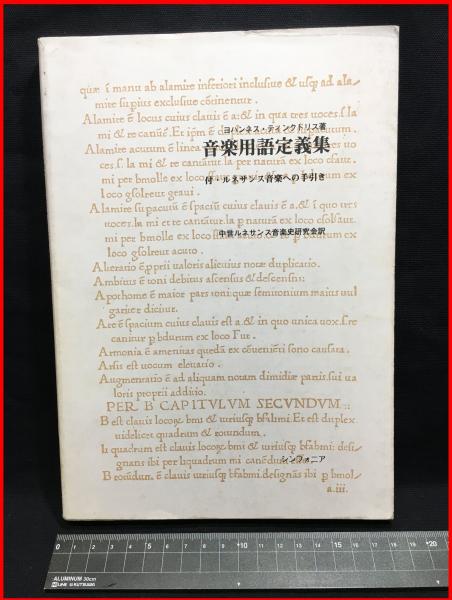 quæ i manu ab alamire inferiori inclusiue & usq; ad ala-
mire supius exclusiue cõtinentur.
Alamire ẽ locus cuius clauis ẽ a. & in qua tres uoces. s. la
mi & re canũt̃. Et ipm ẽ d
ヨハンネス・ティンクトリス著
Alamire acutum ẽ linea
音楽用語定義集
ces s. la mi & re cantãtur. la per naturã ex loco
mi per bmolle ex loco
付・ルネサンス音楽への手引き
loco gsolreut graui.
Alamire supacutũ ẽ spaciũ cuius clauis ẽ a. & i quo tres
uoces. la mi et re cantãtur. la p naturã ex loco
mi per bmolle ex loco
中世ルネサンス音楽史研究会訳
loco gsolreut acuto.
Alteratio ẽ pprii ualoris alicuius notæ duplicatio.
Ambitus ẽ toni debitus ascensus & descensus.
Apothome ẽ maior pars toni: quæ semitonium maius uul
gariter dicitur.
Are ẽ spacium cuius clauis est a. & in quo unica uox. s. re
canitur p bdurum ex loco Γut.
Armonia ẽ amenitas quedã ex cõueniẽti sono causata.
Arsis est uocum eleuatio.
Augmentatio ẽ ad aliquam notam dimidiæ partis sui ua
loris proprii additio.
PER B CAPITVLVM SECVNDVM
B est clauis locoꝝ bmi & utriusq; bfabmi: Et est duplex
uidelicet quadrum & rotundum.
quadrum est clauis locoꝝ bmi & utriusq; bfabmi: desi-
gnans ibi per quadrum mi canẽdum
シンフォニア
B rotũdum. ẽ clauis utriusq; bfabmi: designãs ibi p bmol
a.iii.
0 1 2 3 4 5 6 7 8 9 +10 11 12 13 14 +15 16 17 18 19 +20
ALUMINUM 30cm